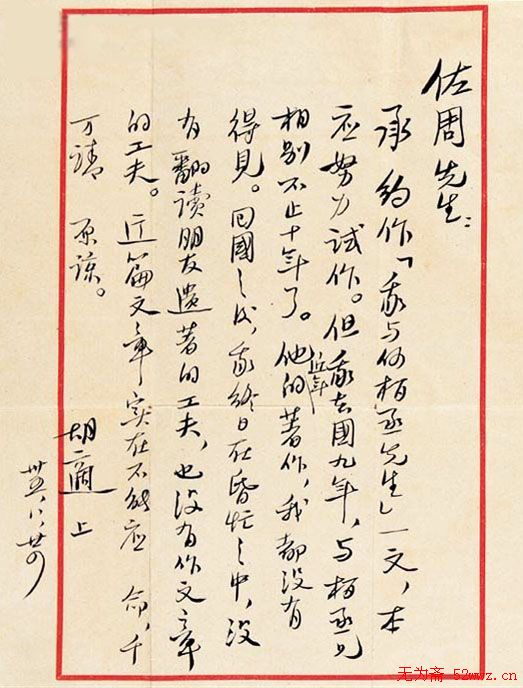 佐周先生：
承 約作「我与何柏丞先生」一文，本
应努力試作。但我去國九年，与柏丞兄
相别不止十年了。他的近年著作，我都没有
得見。回國之後，我終日在昏忙之中，没
有翻读朋友遺著的工夫，也没有作文章
的工夫。这篇文章实在不能应 命，千
万請 原諒。
胡適上
卅五，八，廿四
无为斋-52wwz.cn